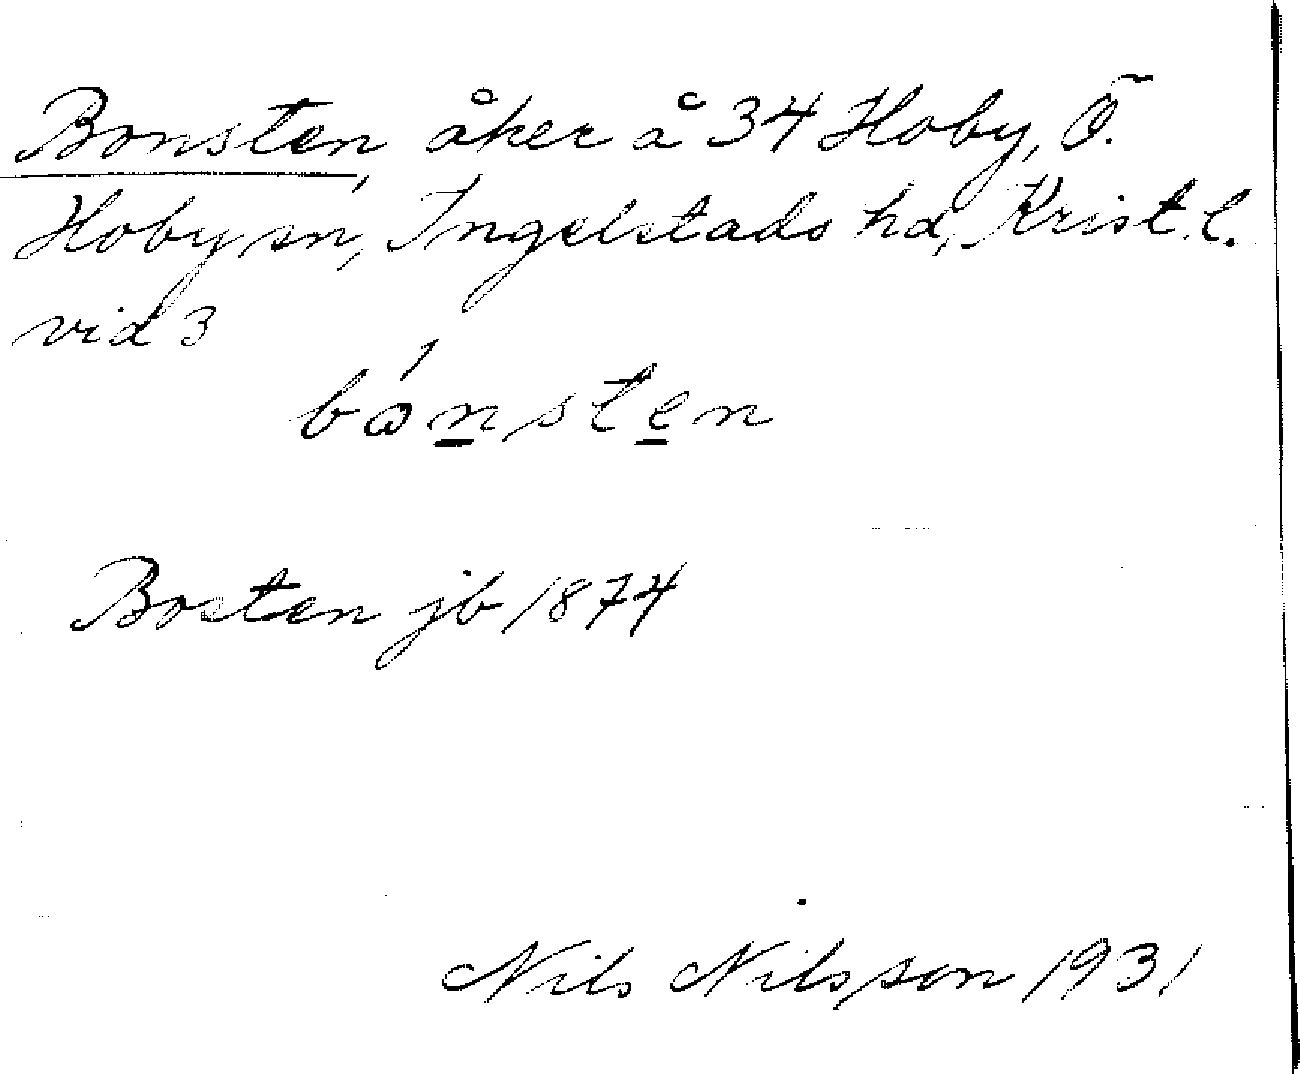 Bonsten, åker å 34 Hoby, Ö.
Hoby sn, Ingelstads hd, Krist. l.
vid 3
bónsten
Bosten jb 1874
Nils Nilsson 1931